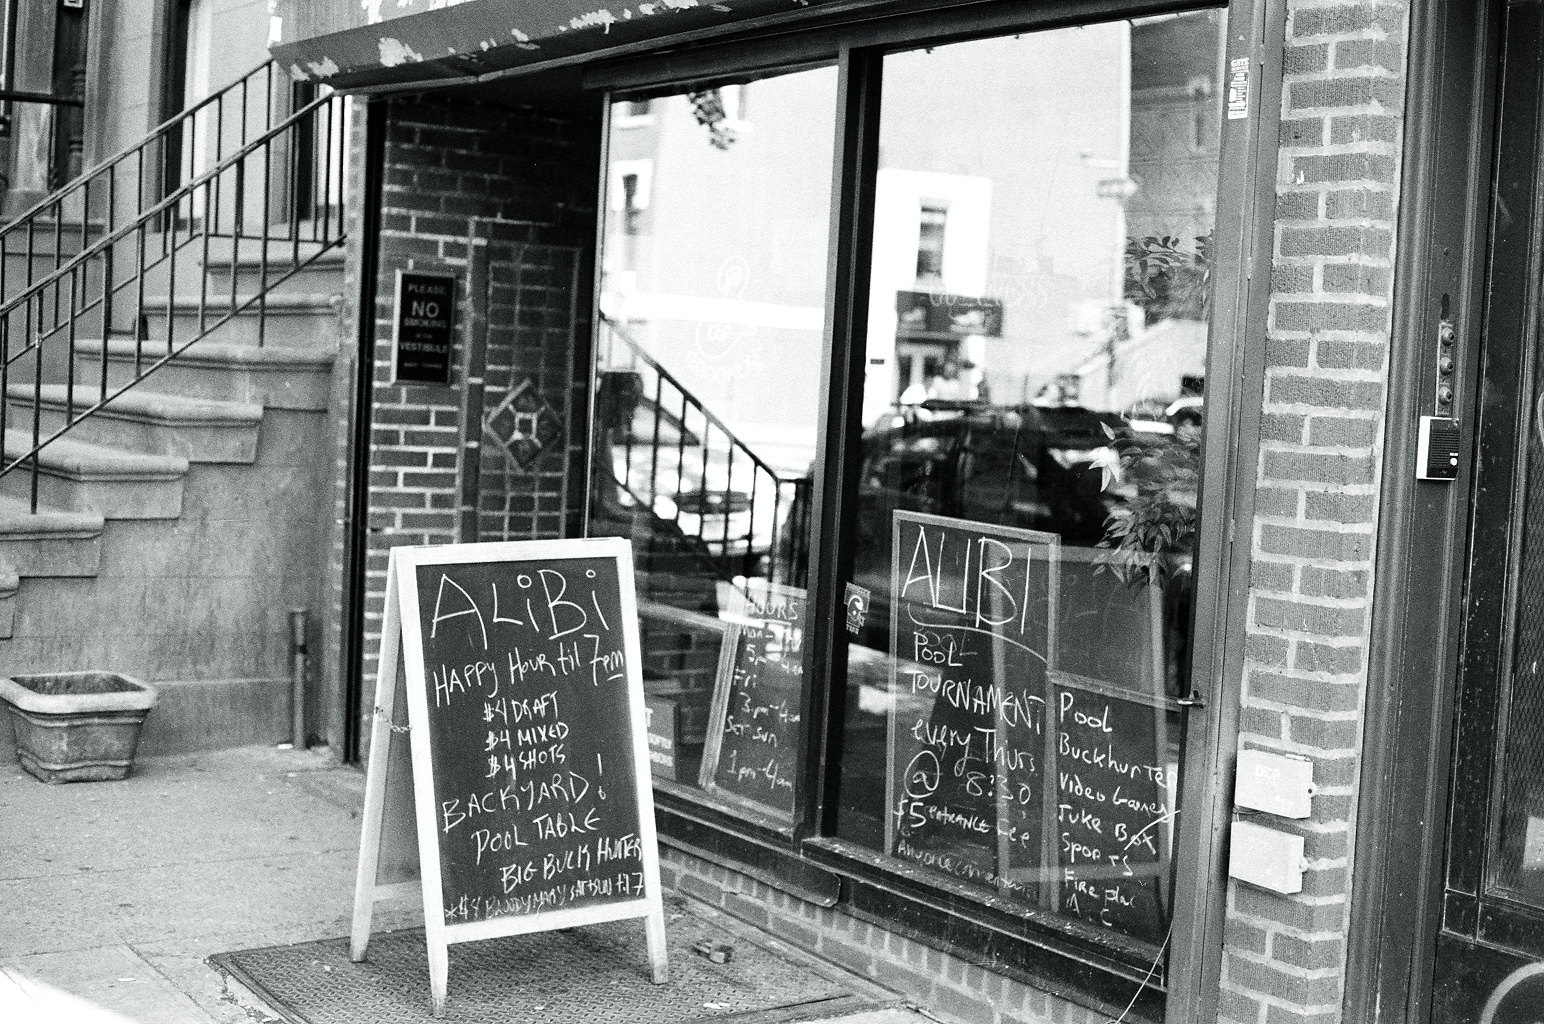 PLEASE
NO
SMOKING
VESTIBULE
ALiBi
HAPPY HOUR til 7pm
$4 DRAFT
$4 MIXED
$4 SHOTS
BACKYARD!
POOL TABLE
BIG BUCK HUNTER
HOURS
Fri
3pm-4am
Sat Sun
1pm-4am
ALIBI
POOL
TOURNAMENT
every Thurs
@ 8:30
$5 ENTRANCE Fee
Pool
Buckhunter
Video Games
Juke Box
Sports
Fire place
A-C